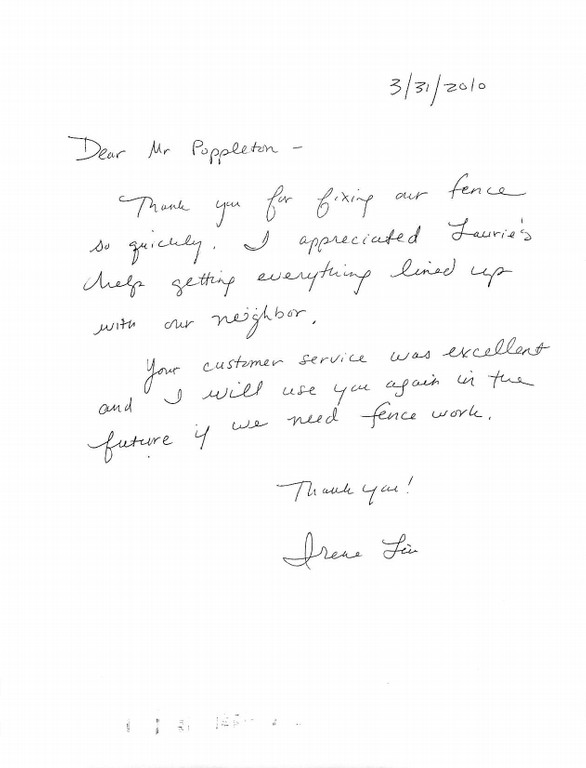 3/31/2010
Dear Mr Poppleton -
Thank you for fixing our fence
so quickly. I appreciated Laurie's
help getting everything lined up
with our neighbor.
Your customer service was excellent
and I will use you again in the
future if we need fence work.
Thank you!
Irene